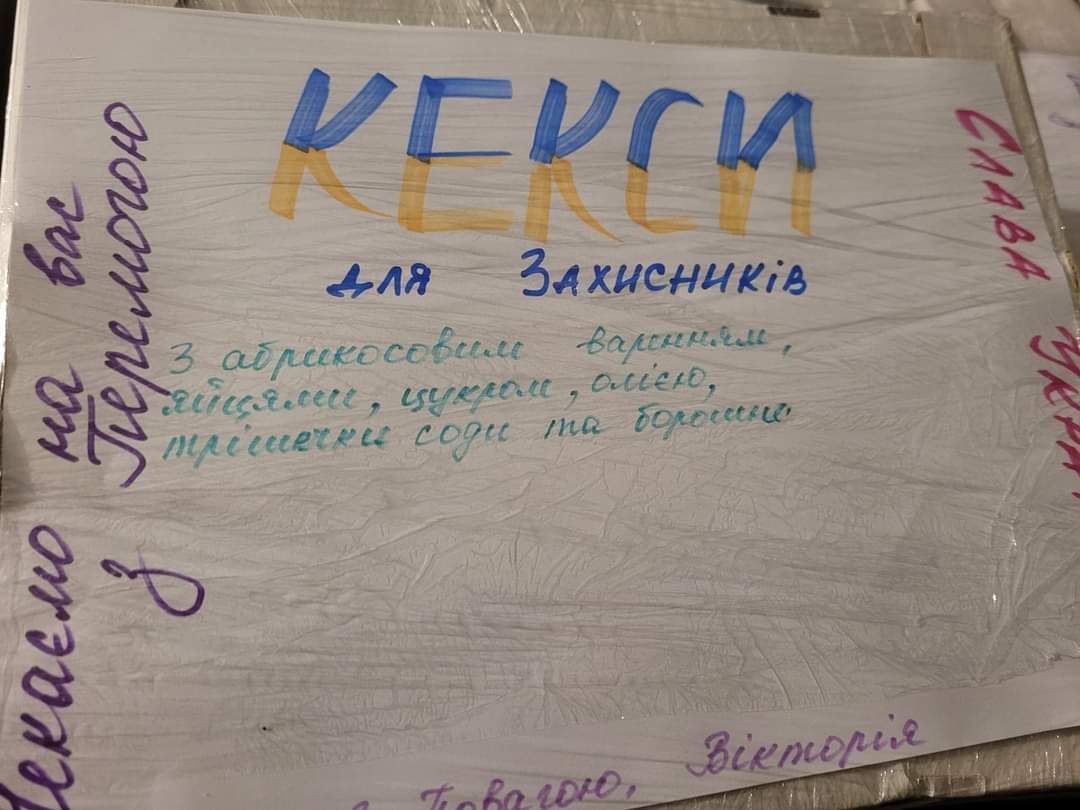 КЕКСИ
для Захисників
З абрикосовим варинням,
яйцями, цукром, олією,
трішечки соди та борошно
Чекаємо на вас
з Перемогою
СЛАВА
Повагою, Вікторія